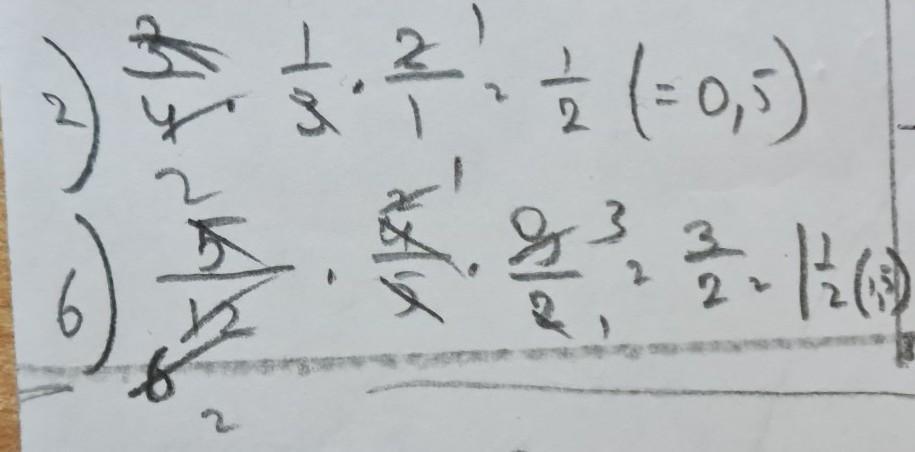 2) 3/4 · 1/3 · 2/1 = 1/2 (= 0,5)
6) 5/12 · 4/5 · 9/2 = 3/2 = 1 1/2 (1,5)